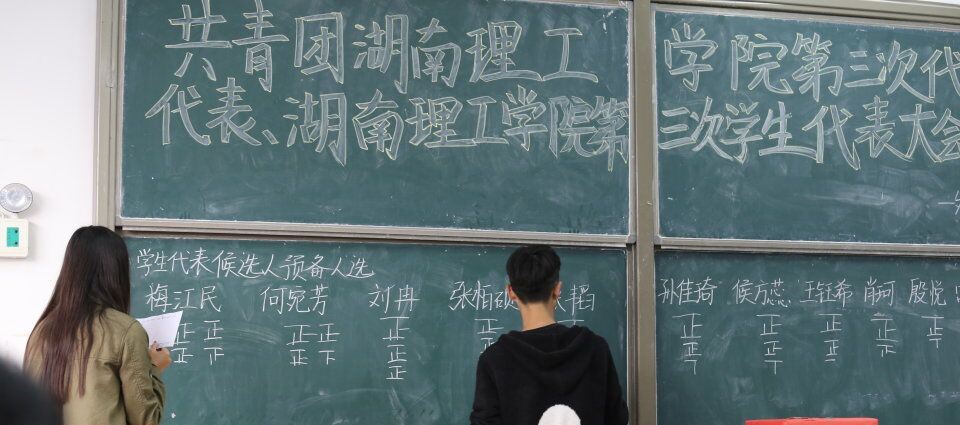 共青团湖南理工学院第三次代
代表、湖南理工学院第三次学生代表大会
学生代表候选人预备人选
梅江民 何宛芳 刘冉 张栢 韬 孙佳琦 侯方蕊 王钰希 肖珂 殷悦
正 正 正 正 正 正 正 正 正 正 正
正 下 正 下 正 正 正 正
正